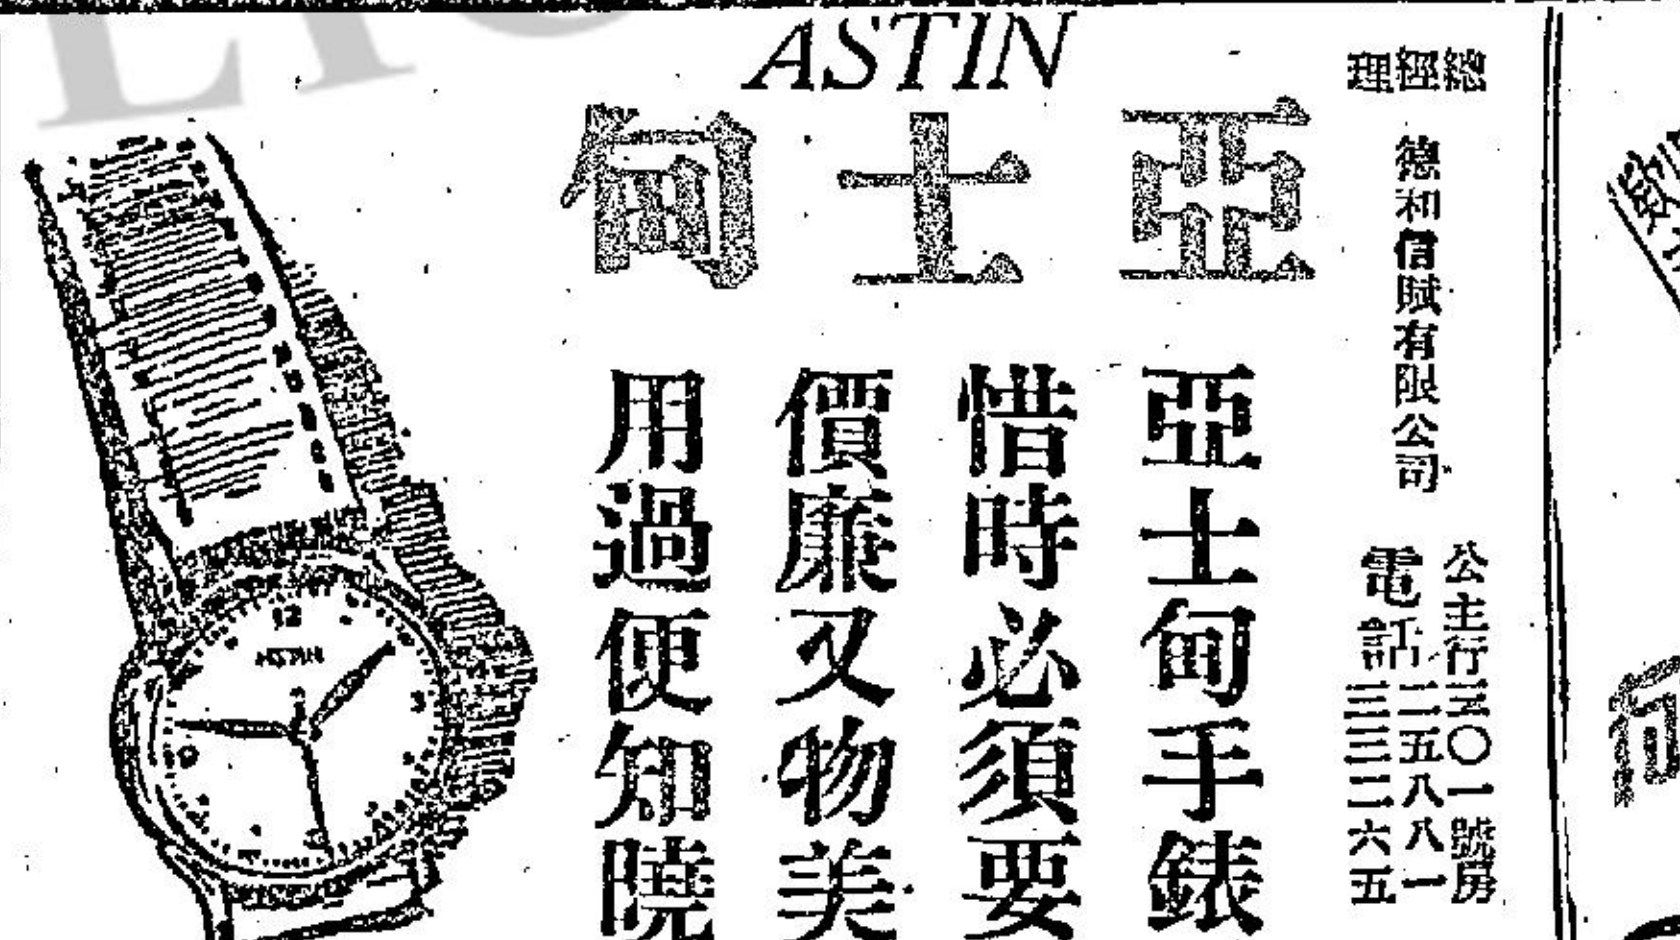 ASTIN
亞士甸
總經理
德和信賦有限公司
公主行三〇一號房
電話
二五八八一
三三二六五
亞士甸手錶
惜時必須要
價廉又物美
用過便知曉
12
ASTIN
3
9